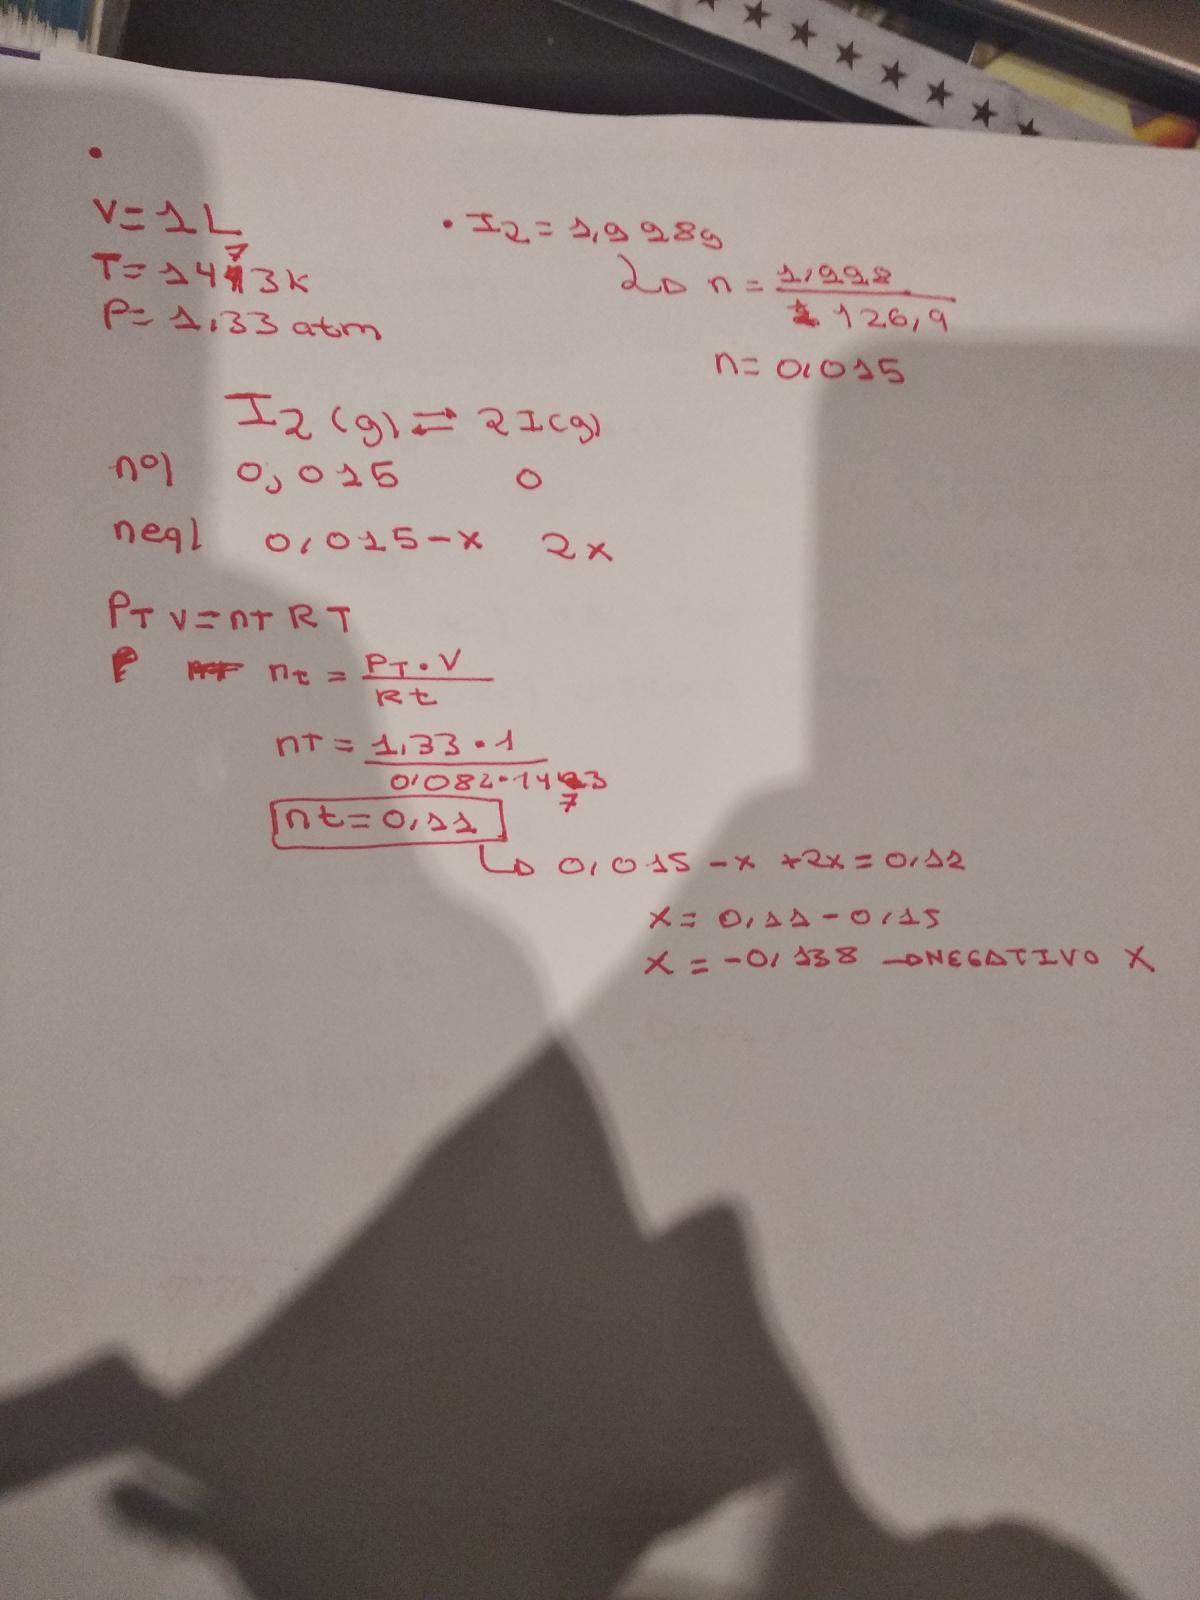 V=1L
T=1473K
P=1,33 atm
• I2 = 1,998g
n = 1,998
126,9
n=0,015
I2 (g) ⇌ 2I(g)
nº| 0,015 0
neq| 0,015-x 2x
PT V=nT R T
nt = PT • V
Rt
nT = 1,33 • 1
0,082•1473
nt=0,11
↳ 0,015 -x +2x = 0,12
x= 0,11-0,15
x=-0,138 → NEGATIVO X